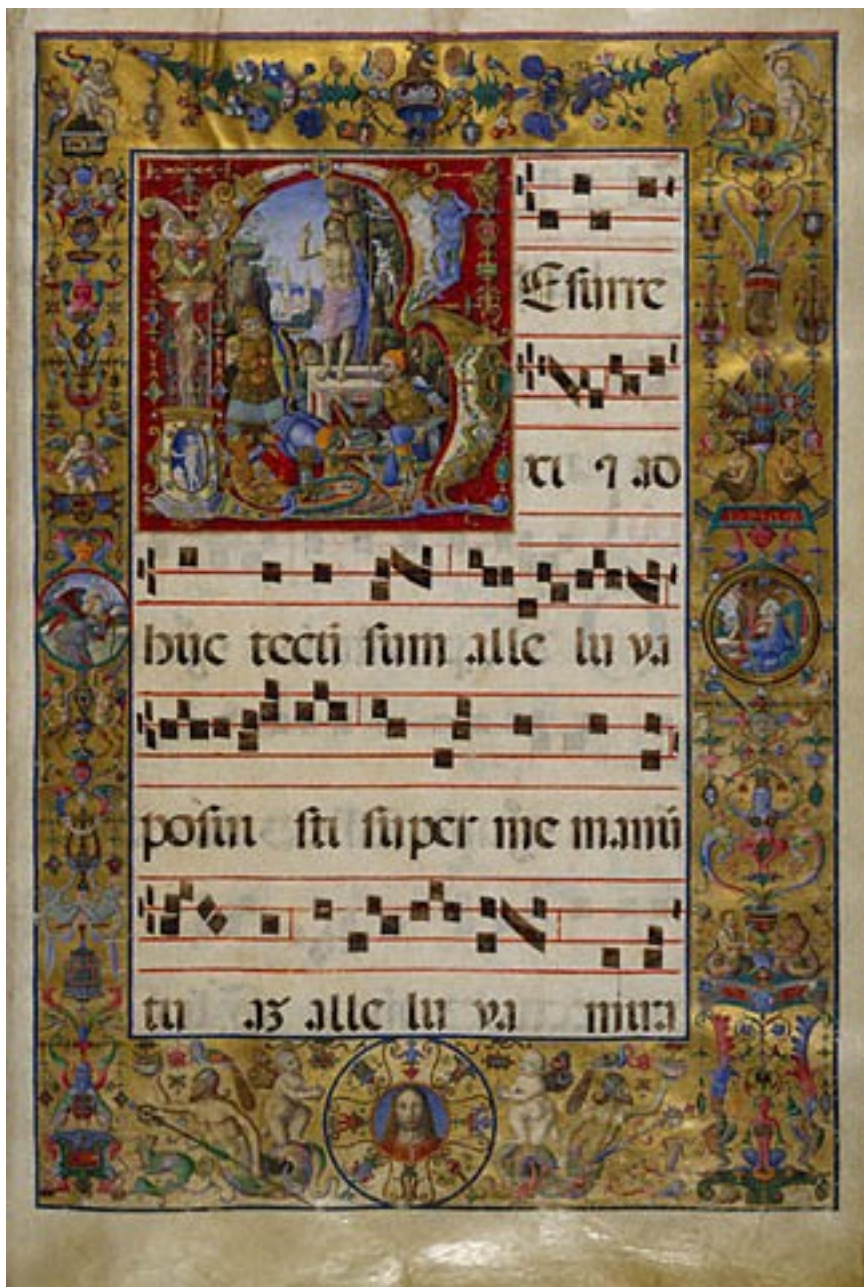 Esurre
xi ⁊ ad
huc tecu sum alle lu ya
posui sti super me manū
tu aʒ alle lu ya mira